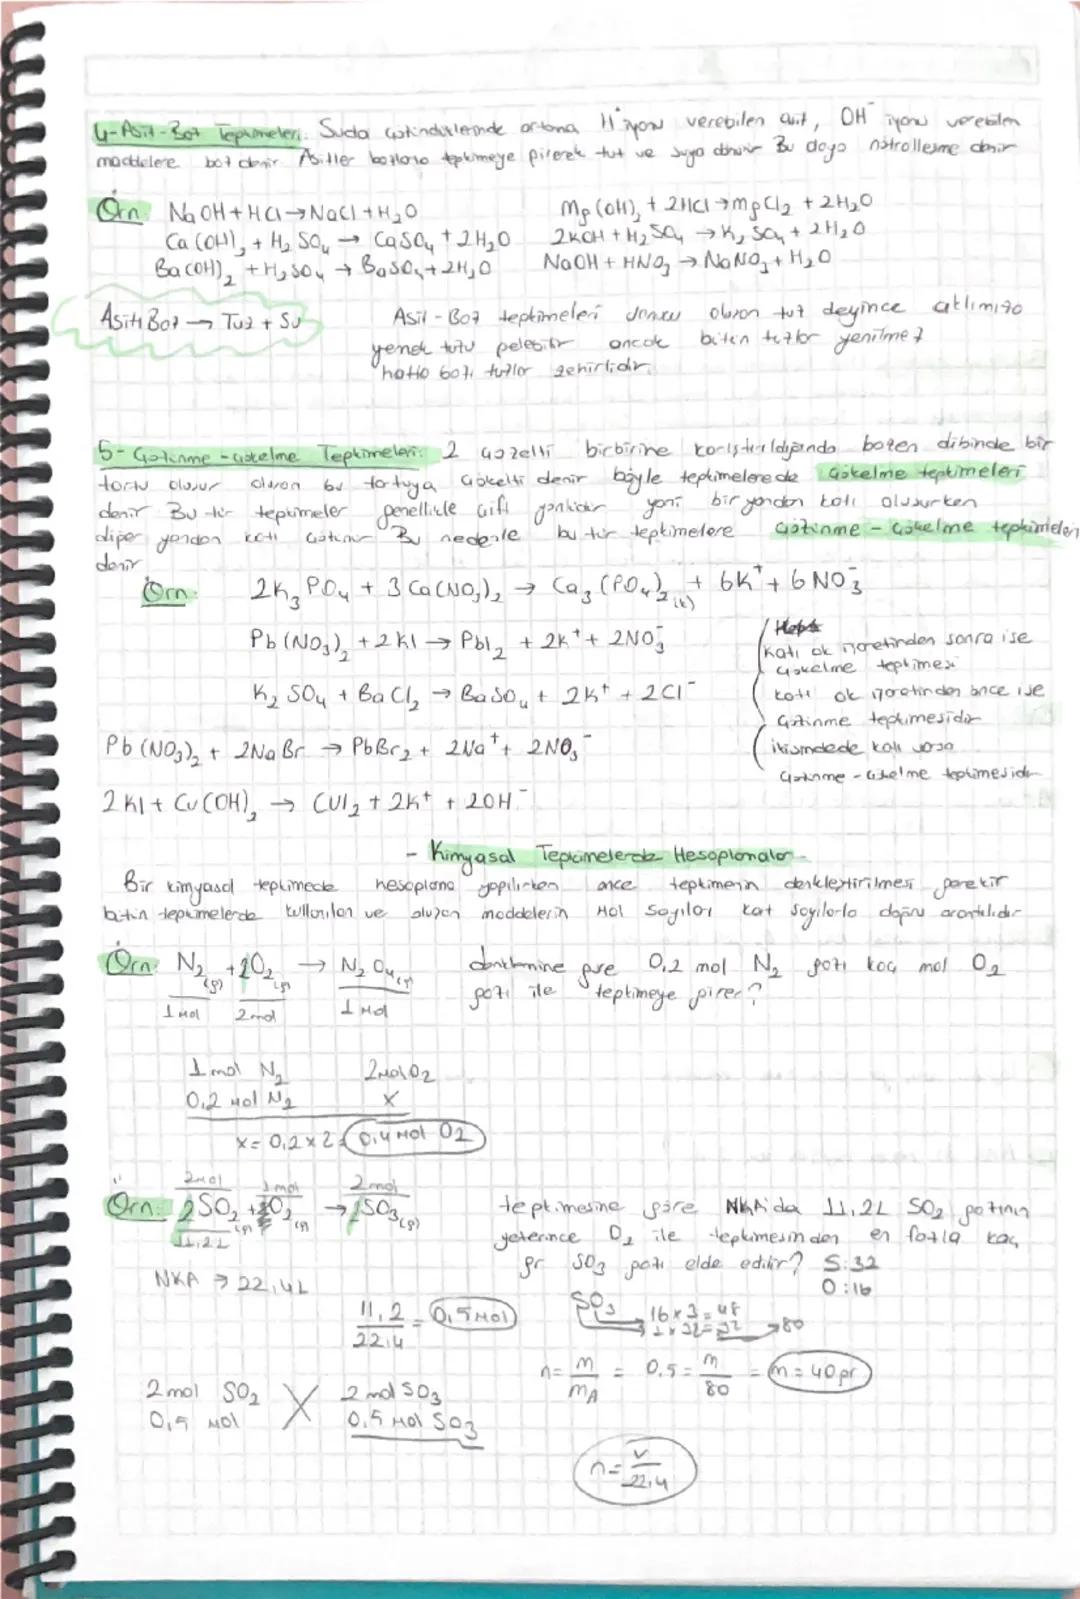 4-Asit-Baz Tepkimeleri: Suda çözündüklerinde ortama H⁺ iyonu verebilen asit, OH⁻ iyonu verebilen
maddelere baz denir Asitler bazlarla tepkimeye girerek tuz ve suya dönüşür Bu olaya nötrolleşme denir
Örn: NaOH + HCl → NaCl + H₂O
Mg(OH)₂ + 2HCl → MgCl₂ + 2H₂O
Ca(OH)₂ + H₂SO₄ → CaSO₄ + 2H₂O
2KOH + H₂SO₄ → K₂SO₄ + 2H₂O
Ba(OH)₂ + H₂SO₄ → BaSO₄ + 2H₂O
NaOH + HNO₃ → NaNO₃ + H₂O
Asit + Baz → Tuz + Su
Asit - Baz tepkimeleri sonucu oluşan tuz deyince aklımıza
yemek tuzu gelebilir ancak bütün tuzlar yenilmez
hatta bazı tuzlar zehirlidir.
5- Çözünme - Çökelme Tepkimeleri: 2 çözelti birbirine karıştırıldığında bazen dibinde bir
tortu oluşur oluşan bu tortuya çökelti denir böyle tepkimelere de çökelme tepkimeleri
denir Bu tür tepkimeler genellikle çift yönlüdür yani bir yandan katı oluşurken
diğer yandan katı çözünür Bu nedenle bu tür tepkimelere çözünme - çökelme tepkimeleri
denir
Örn: 2K₃PO₄ + 3Ca(NO₃)₂ → Ca₃(PO₄)₂(k) + 6K⁺ + 6NO₃⁻
Pb(NO₃)₂ + 2KI → PbI₂ + 2K⁺ + 2NO₃⁻
K₂SO₄ + BaCl₂ → BaSO₄ + 2K⁺ + 2Cl⁻
Pb(NO₃)₂ + 2NaBr → PbBr₂ + 2Na⁺ + 2NO₃⁻
2KI + Cu(OH)₂ → CuI₂ + 2K⁺ + 2OH⁻
Katı ok işaretinden sonra ise
çökelme tepkimesi
katı ok işaretinden önce ise
çözünme tepkimesidir
ikisindede katı varsa
çözünme - çökelme tepkimesidir
- Kimyasal Tepkimelerde Hesaplamalar -
Bir kimyasal tepkimede hesaplama yapılırken önce tepkimenin denkleştirilmesi gerekir
bütün tepkimelerde kullanılan ve oluşan maddelerin Mol sayıları kat sayılarla doğru orantılıdır
Örn: N₂(g) + 2O₂(g) → N₂O₄(g) denklemine göre 0,2 mol N₂ gazı kaç mol O₂
gazı ile tepkimeye girer?
1 mol 2 mol 1 mol
1 mol N₂ 2 mol O₂
0,2 mol N₂ x
x = 0,2 x 2 = 0,4 mol O₂
2 mol 1 mol 2 mol
Örn: 2SO₂(g) + O₂(g) → 2SO₃(g) tepkimesine göre NKA'da 11,2L SO₂ gazının
11,2L
yeterince O₂ ile tepkimesinden en fazla kaç
gr SO₃ gazı elde edilir? S:32
O:16
NKA → 22,4L
11,2 / 22,4 = 0,5 mol
SO₃
16 x 3 = 48
1 x 32 = 32 → 80
n = m / mA = 0,5 = m / 80 = m = 40 gr
2 mol SO₂ 2 mol SO₃
0,5 mol 0,5 mol SO₃
n = v / 22,4